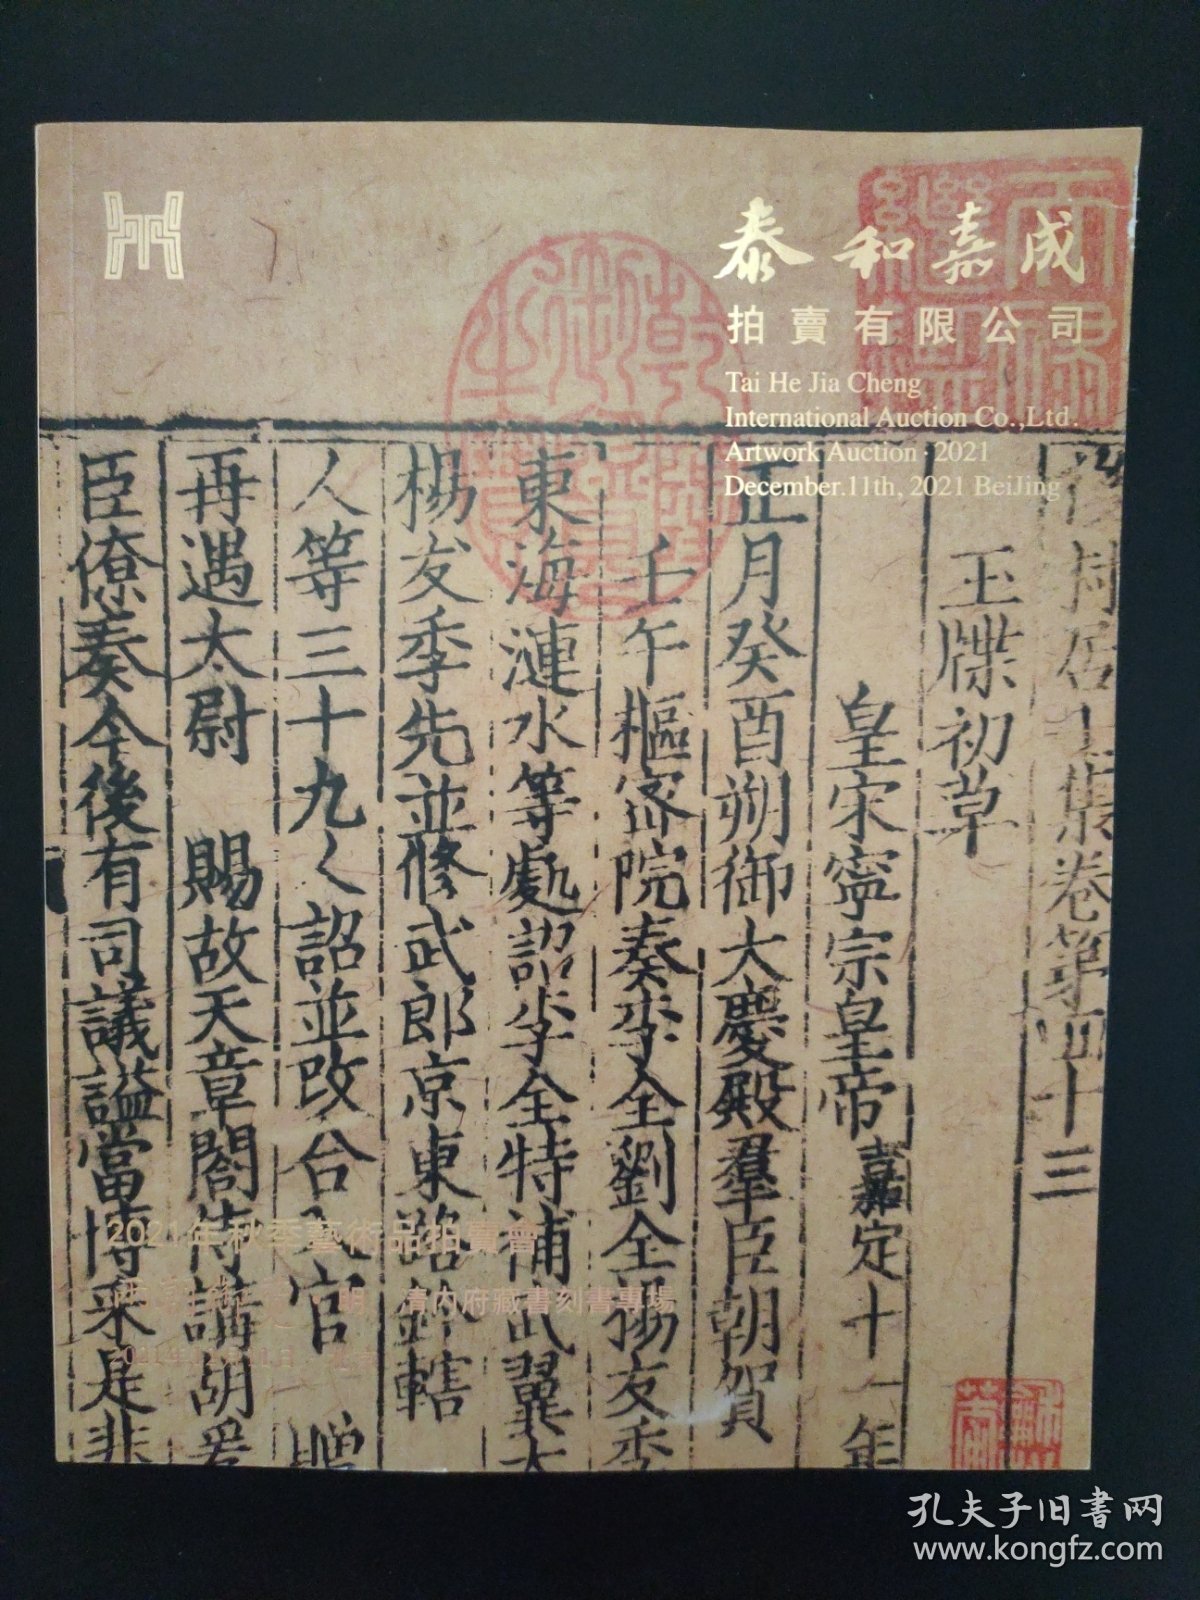 泰和嘉成
拍賣有限公司
Tai He Jia Cheng
International Auction Co.,Ltd.
Artwork Auction · 2021
December.11th, 2021 BeiJing
集卷第四十三
玉牒初草
皇宋寧宗皇帝嘉定十一年
正月癸酉朔御大慶殿羣臣朝賀
壬午樞宻院奏李全劉全楊友季
東海漣水等處詔李全特補武翼大
楊友季先並修武郎京東路鈐轄
人等三十九人詔並改合入官 贈
再遇太尉 賜故天章閣侍講胡爰
臣僚奏今後有司議謚當博采是非
2021年秋季藝術品拍賣會
明 清内府藏書刻書專場
孔夫子旧书网
www.kongfz.com